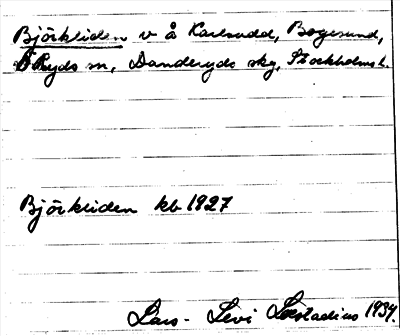 Björkliden v å Karlsudd, Bogesund,
Ö Ryds sn, Danderyds skg, Stockholms l.
Björkliden kb 1927
Lars-Levi Læstadius 1934.